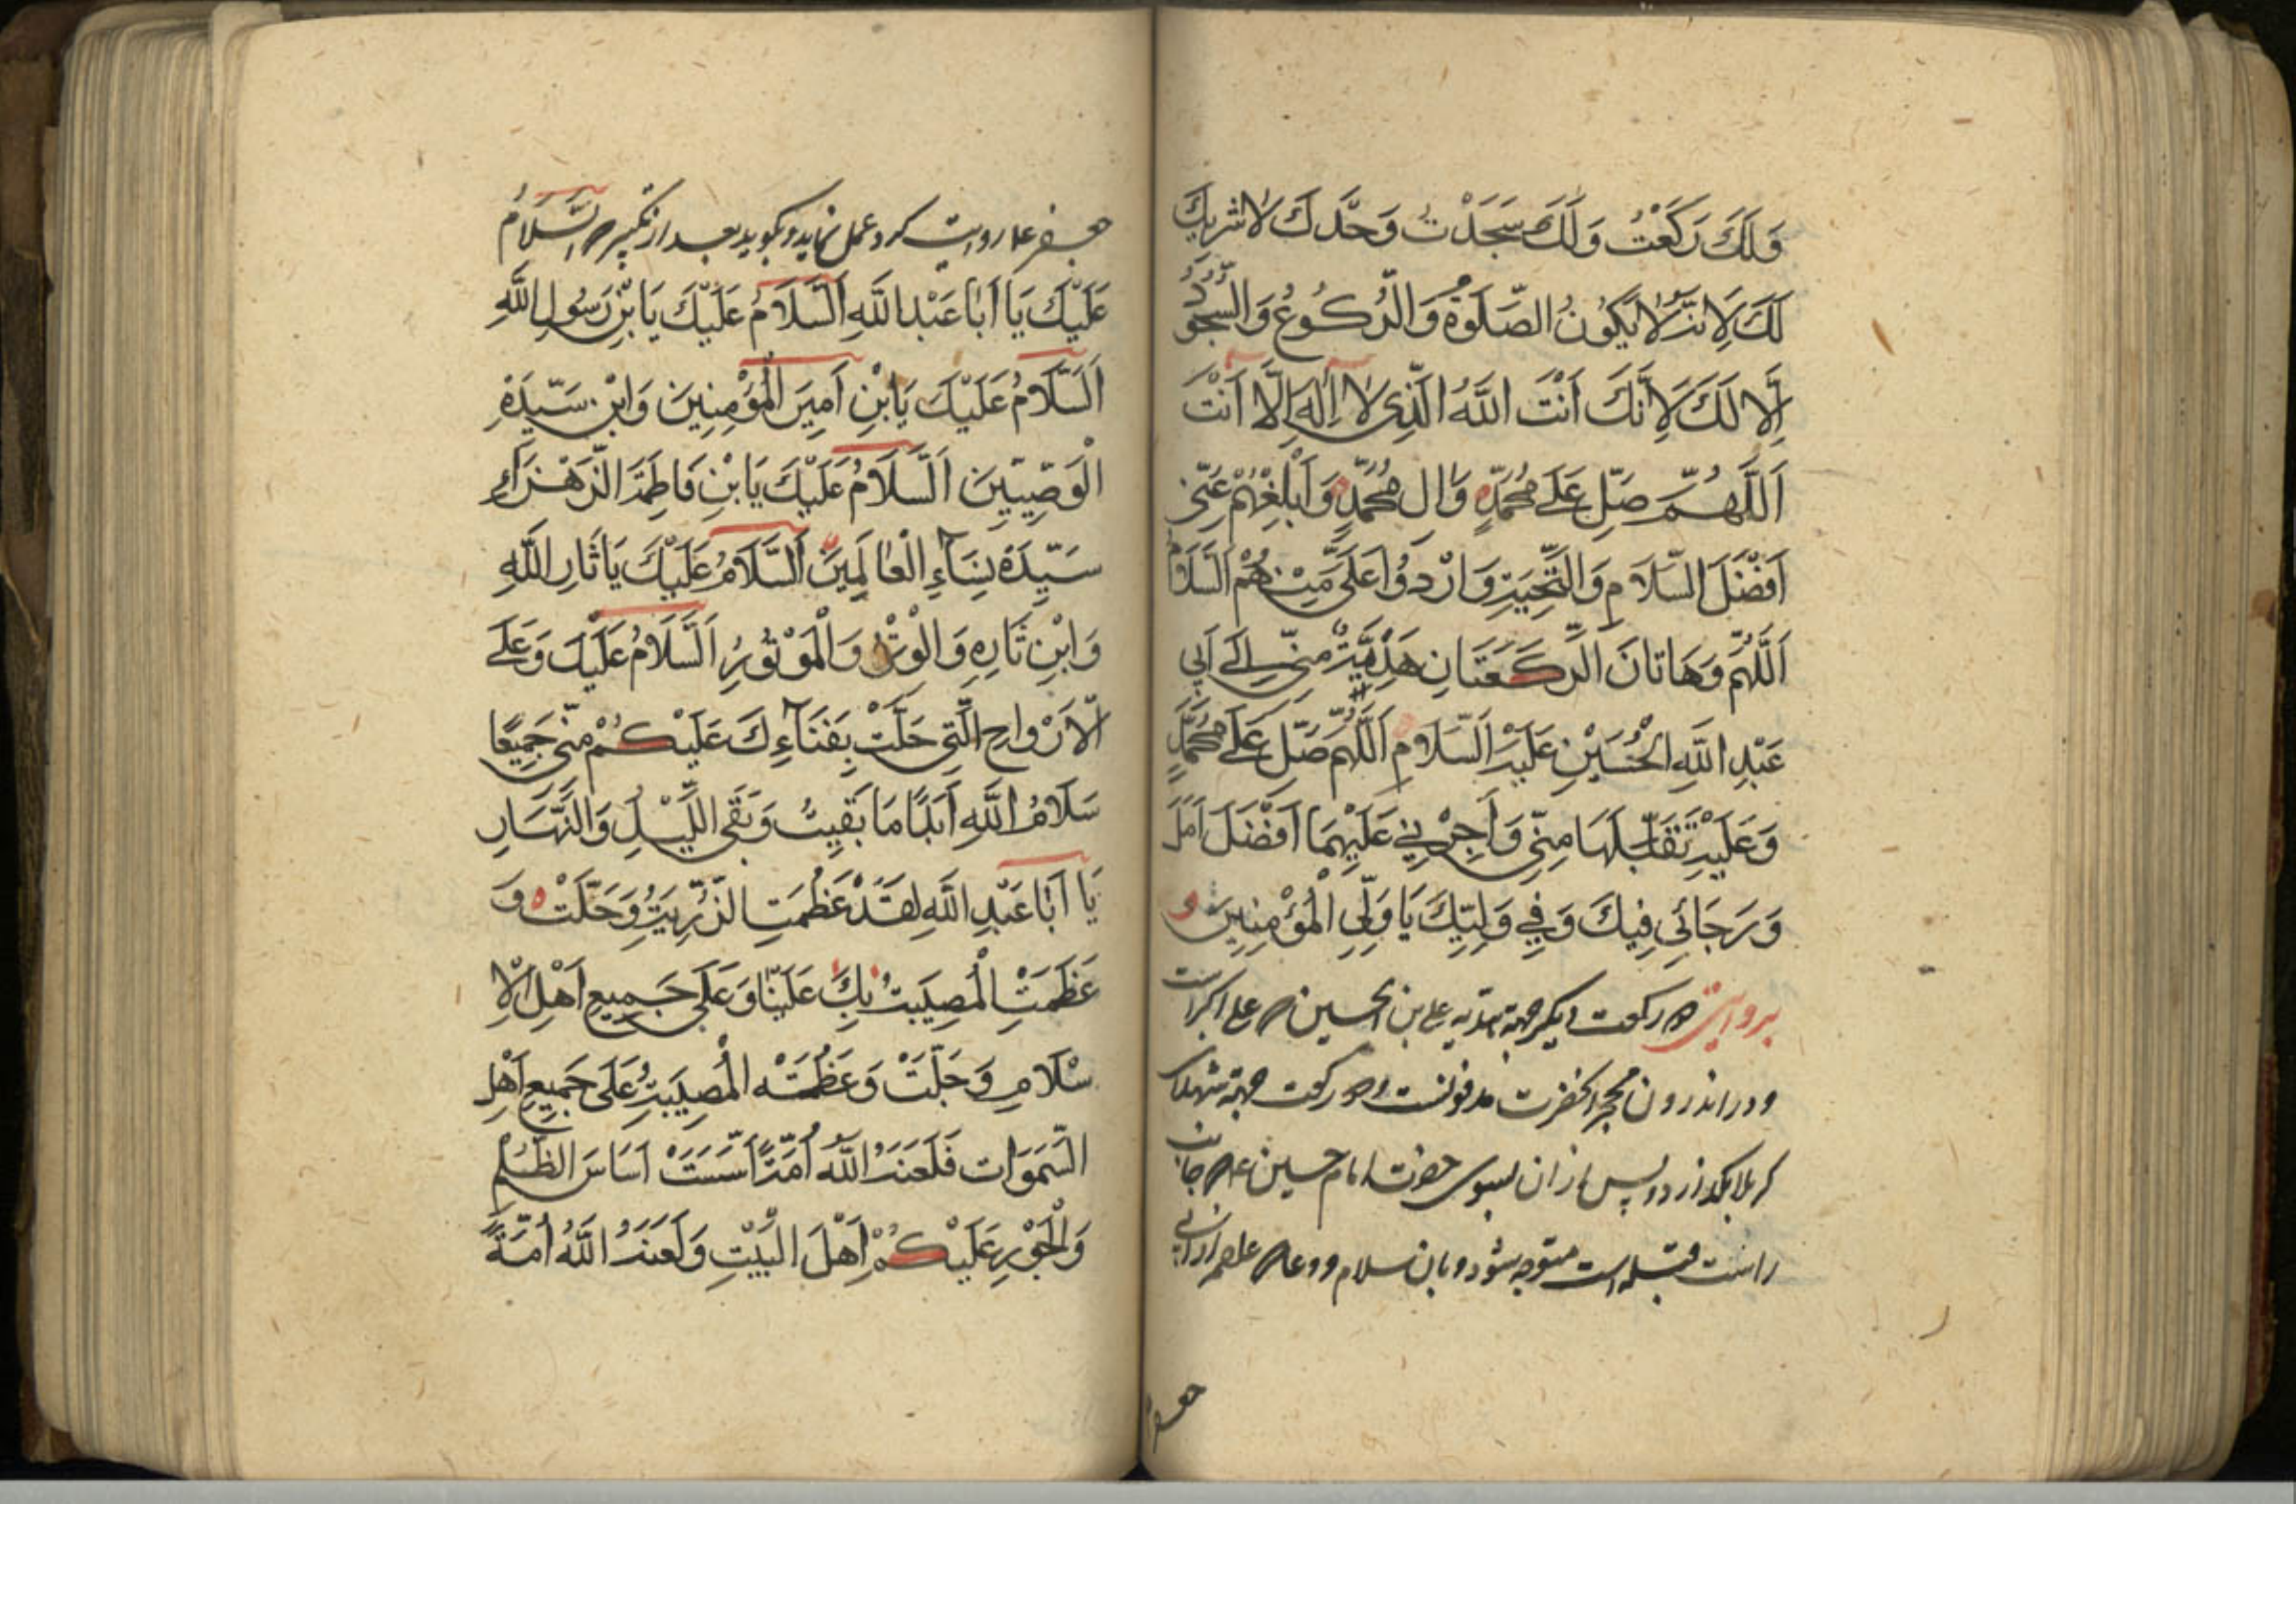 وَلَكَ رَكَعْتُ وَلَكَ سَجَدْتُ وَحْدَكَ لَا شَرِيكَ
لَكَ لِاَنَّهُ لَا يَكُونُ الصَّلَوةُ وَالرُّكُوعُ وَالسُّجُودُ
اِلَّا لَكَ لِاَنَّكَ اَنْتَ اللَّهُ الَّذِى لَا اِلَهَ اِلَّا اَنْتَ
اَللَّهُمَّ صَلِّ عَلَى مُحَمَّدٍ وَالِ مُحَمَّدٍ وَاَبْلِغْهُمْ عَنِّى
اَفْضَلَ السَّلَامِ وَالتَّحِيَّةِ وَارْدُدْ عَلَىَّ مِنْهُمُ السَّلَامَ
اَللَّهُمَّ وَهَاتَانِ الرَّكْعَتَانِ هَدِيَّةٌ مِنِّى اِلَى اَبِى
عَبْدِ اللَّهِ الْحُسَيْنِ عَلَيْهِ السَّلَامِ اَللَّهُمَّ صَلِّ عَلَى مُحَمَّدٍ
وَعَلَيْهِ تَقَبَّلْهَا مِنِّى وَاَجِرْنِى عَلَيْهِمَا اَفْضَلَ اَمَلِى
وَرَجَائِى فِيكَ وَفِى وَلِيِّكَ يَا وَلِىَّ الْمُؤْمِنِينَ و
بروايتى دو ركعت ديگر جهة هديه على بن الحسين كه على اكبر است
و در اندرون محجر انحضرت مدفونست ودو ركعت جهة شهداء
كربلا بگذارد و پس از ان بسوى حضرت امام حسين ع كه جانب
راست قبله است متوجه شود و بان سلام و دعا كه
جعفر
جعفر ع روايت كرد عمل نمايد و بگويد بعد از تكبير كه السَّلَامُ
عَلَيْكَ يَا اَبَا عَبْدِ اللَّهِ اَلسَّلَامُ عَلَيْكَ يَابْنَ رَسُولِ اللَّهِ
اَلسَّلَامُ عَلَيْكَ يَابْنِ اَمِيرَ الْمُؤْمِنِينَ وَابْنِ سَيِّدَةِ
الْوَصِيِّينَ اَلسَّلَامُ عَلَيْكَ يَابْنِ فَاطِمَةَ الزَّهْرَاءِ
سَيِّدَةِ نِسَاءِ الْعَالَمِينَ اَلسَّلَامُ عَلَيْكَ يَا ثَارَ اللَّهِ
وَابْنِ ثَارِهِ وَالْوِتْرِ وَالْمَوْتُورِ اَلسَّلَامُ عَلَيْكَ وَعَلَى
الْاَرْوَاحِ الَّتِى حَلَّتْ بِفَنَاءِكَ عَلَيْكُمْ مِنِّى جَمِيعًا
سَلَامُ اللَّهِ اَبَدًا مَا بَقِيتُ وَبَقَى اللَّيْلُ وَالنَّهَارِ
يَا اَبَا عَبْدِ اللَّهِ لَقَدْ عَظُمَتِ الرَّزِيَّةُ وَجَلَّتْ وَ
عَظُمَتِ الْمُصِيبَةُ بِكَ عَلَيْنَا وَعَلَى جَمِيعِ اَهْلِ الْاِ
سْلَامِ وَجَلَّتْ وَعَظُمَتْ الْمُصِيبَةُ عَلَى جَمِيعِ اَهْلِ
السَّمَوَاتِ فَلَعَنَ اللَّهُ اُمَّةً اَسَّسَتْ اَسَاسَ الظُّلْمِ
وَالْجَوْرِ عَلَيْكُمْ اَهْلَ الْبَيْتِ وَلَعَنَ اللَّهُ اُمَّةً